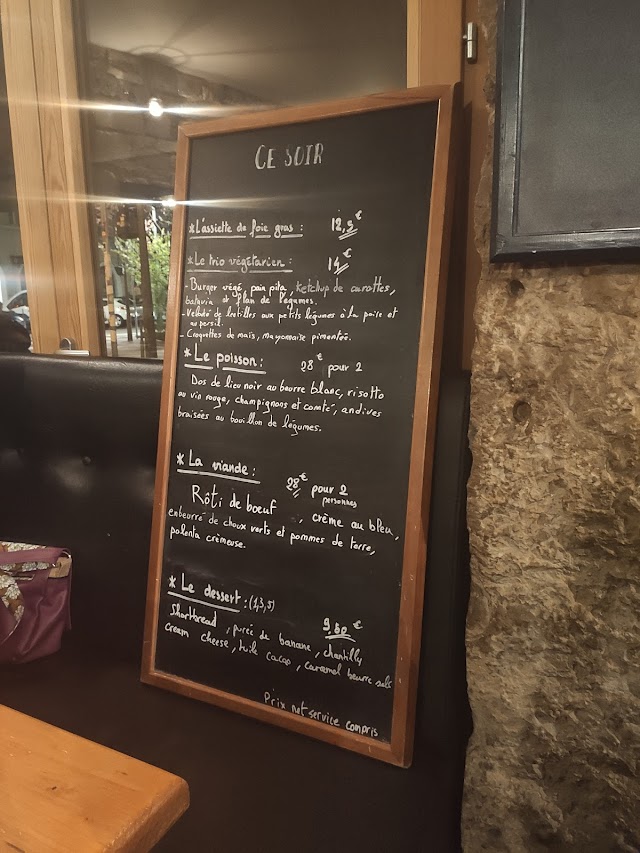 CE SOIR
*L'assiette de foie gras : 12,5€
*Le trio végétarien : 14€
- Burger végé, pain pita, ketchup de carottes,
batavia et flan de légumes.
- Velouté de lentilles aux petits légumes à la poire et
au persil.
- Croquettes de maïs, mayonnaise pimentée.
* Le poisson : 28€ pour 2
Dos de lieu noir au beurre blanc, risotto
au vin rouge, champignons et comté, andives
braisées au bouillon de légumes.
* La viande : 28€ pour 2
personnes
Rôti de boeuf , crème au bleu,
enbeurré de choux verts et pommes de terre,
polenta crèmeuse.
* Le dessert : (1,3,5) 9,60€
Shortbread , purée de banane, chantilly
cream cheese, tuile cacao, caramel beurre salé
Prix net service compris